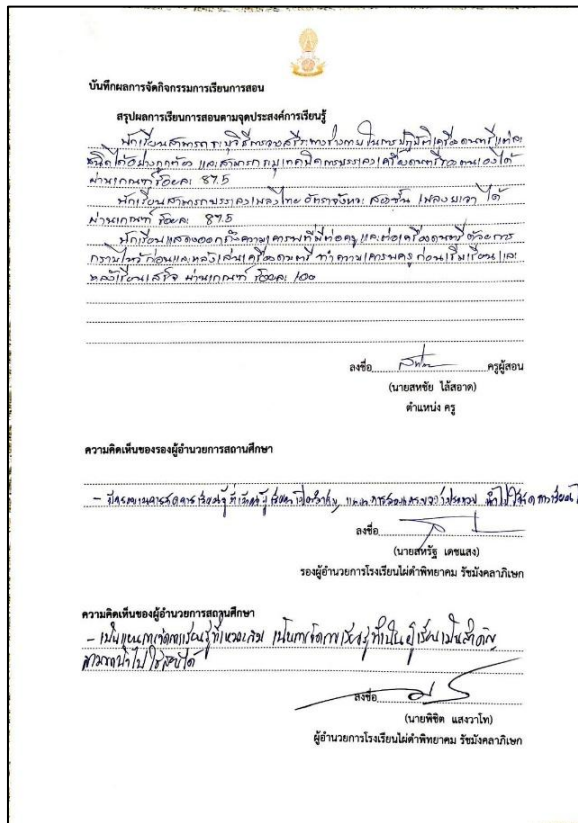 บันทึกผลการจัดกิจกรรมการเรียนการสอน
สรุปผลการเรียนการสอนตามจุดประสงค์การเรียนรู้
นักเรียนสามารถระบุวิธีการวางสรีระทางร่างกายในการปฏิบัติเครื่องดนตรีแต่ละ
ชนิดได้อย่างถูกต้อง และสามารถระบุเทคนิคการบรรเลงเครื่องดนตรีของตนเองได้
ผ่านเกณฑ์ร้อยละ 87.5
นักเรียนสามารถบรรเลงเพลงไทย อัตราจังหวะ สองชั้น เพลง ได้
ผ่านเกณฑ์ ร้อยละ 87.5
นักเรียนแสดงออกถึงความเคารพที่มีต่อครู และต่อเครื่องดนตรี ด้วยการ
กราบไหว้ก่อนและหลังเล่นเครื่องดนตรี ทำความเคารพครู ก่อนเริ่มเรียน และ
หลังเรียนเสร็จ ผ่านเกณฑ์ ร้อยละ 100
ลงชื่อ ครูผู้สอน
(นายสหชัย ไล้สอาด)
ตำแหน่ง ครู
ความคิดเห็นของรองผู้อำนวยการสถานศึกษา
ลงชื่อ
(นายสหรัฐ เดชแสง)
รองผู้อำนวยการโรงเรียนไผ่ดำพิทยาคม รัชมังคลาภิเษก
ความคิดเห็นของผู้อำนวยการสถานศึกษา
- เป็นแผนการจัดการเรียนรู้ที่เหมาะสม เน้นการจัดการเรียนรู้ที่เน้นผู้เรียนเป็นสำคัญ
สามารถนำไปใช้สอนได้
ลงชื่อ
(นายพิชิต แสงวาโท)
ผู้อำนวยการโรงเรียนไผ่ดำพิทยาคม รัชมังคลาภิเษก